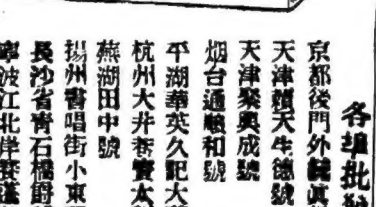 各埠批發
京都後門外
天津賴天生德號
天津聚興成號
烟台通順和號
平湖華英久記大
杭州大井巷寶太
蕪湖田中號
揚州舊唱街小東
長沙省青石橋爵
寧波江北岸